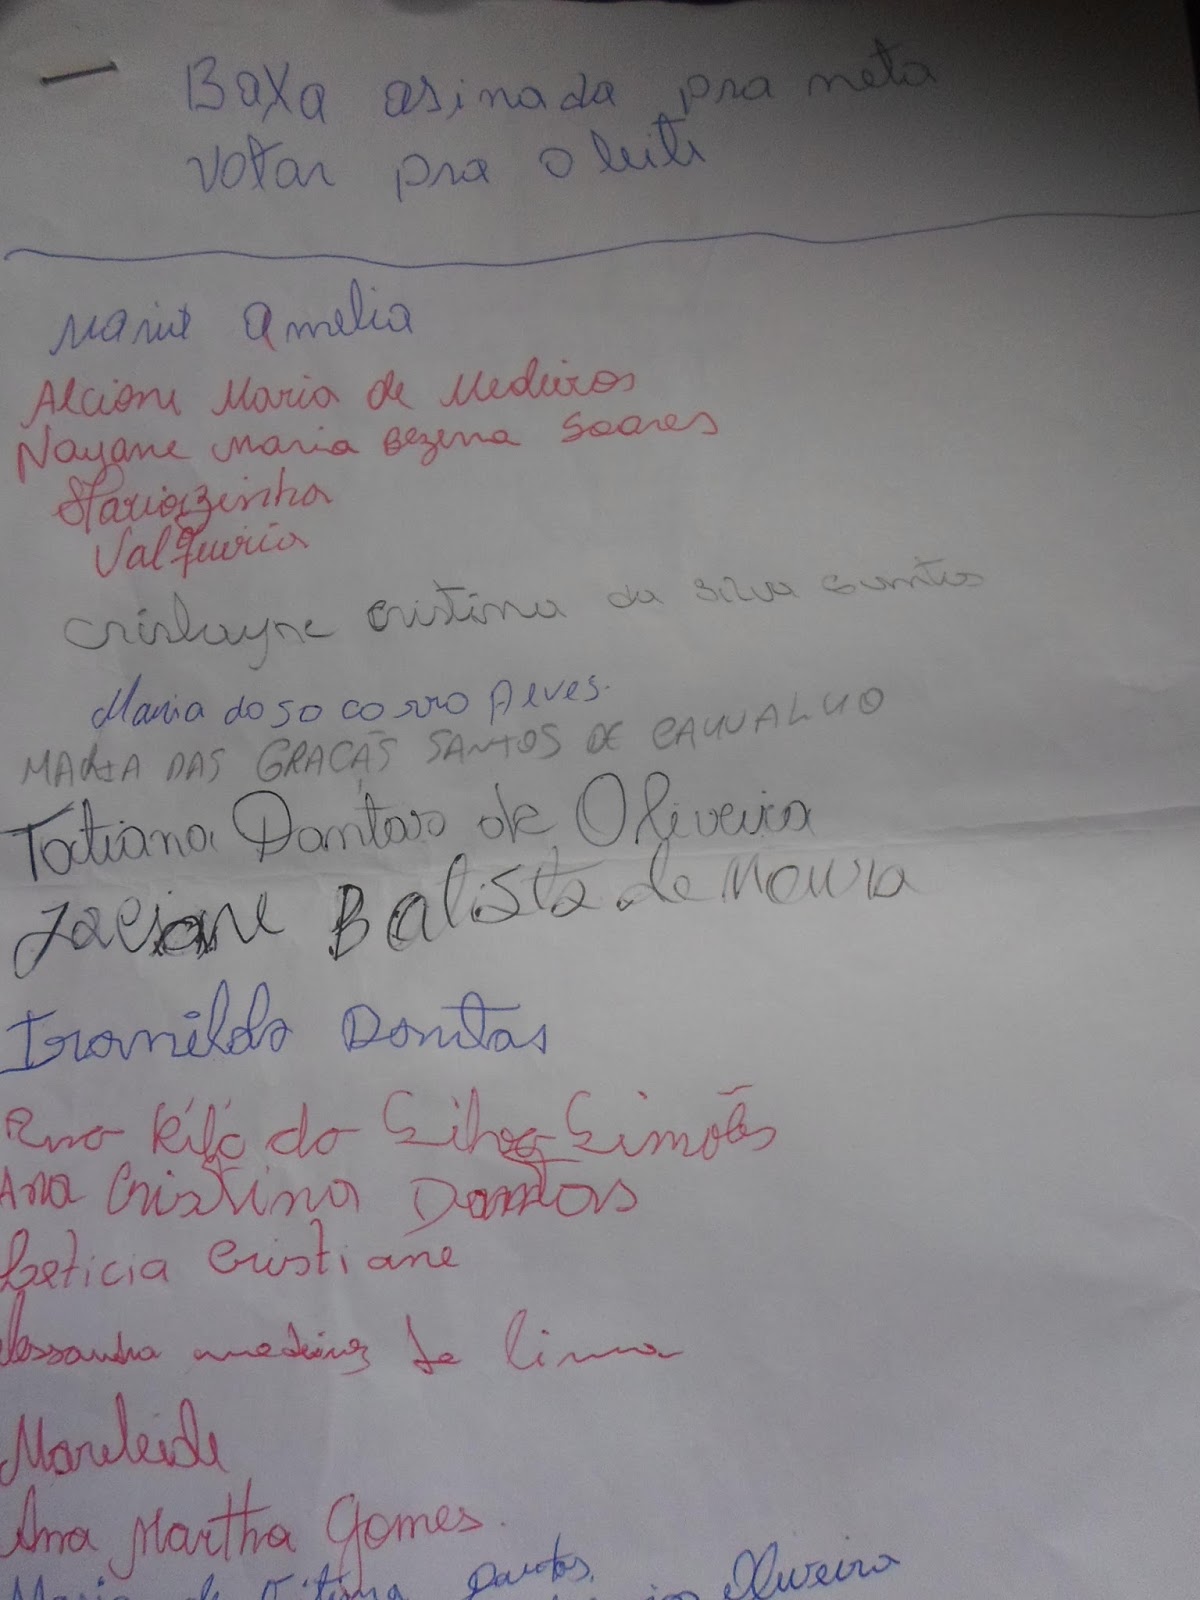 BaXa asinada pra neta
votar pra o leite
Amelia
Alcione Maria de Medeiros
Nayane Maria Bezerra Soares
Mariazinha
Valquiria
Crislayne Cristina da Silva Santos
Maria do so corro Alves.
MARIA DAS GRAÇAS SANTOS DE CARVALHO
Tatiana Dantas de Oliveira
Jaciane Batista de Moura
Iranilda Dantas
da Silva Simões
Ana Cristina Dantas
Leticia Cristiane
lessandra medeiros de lima
Marileide
Ana Martha Gomes.
Maria de Fátima Dantas
Oliveira